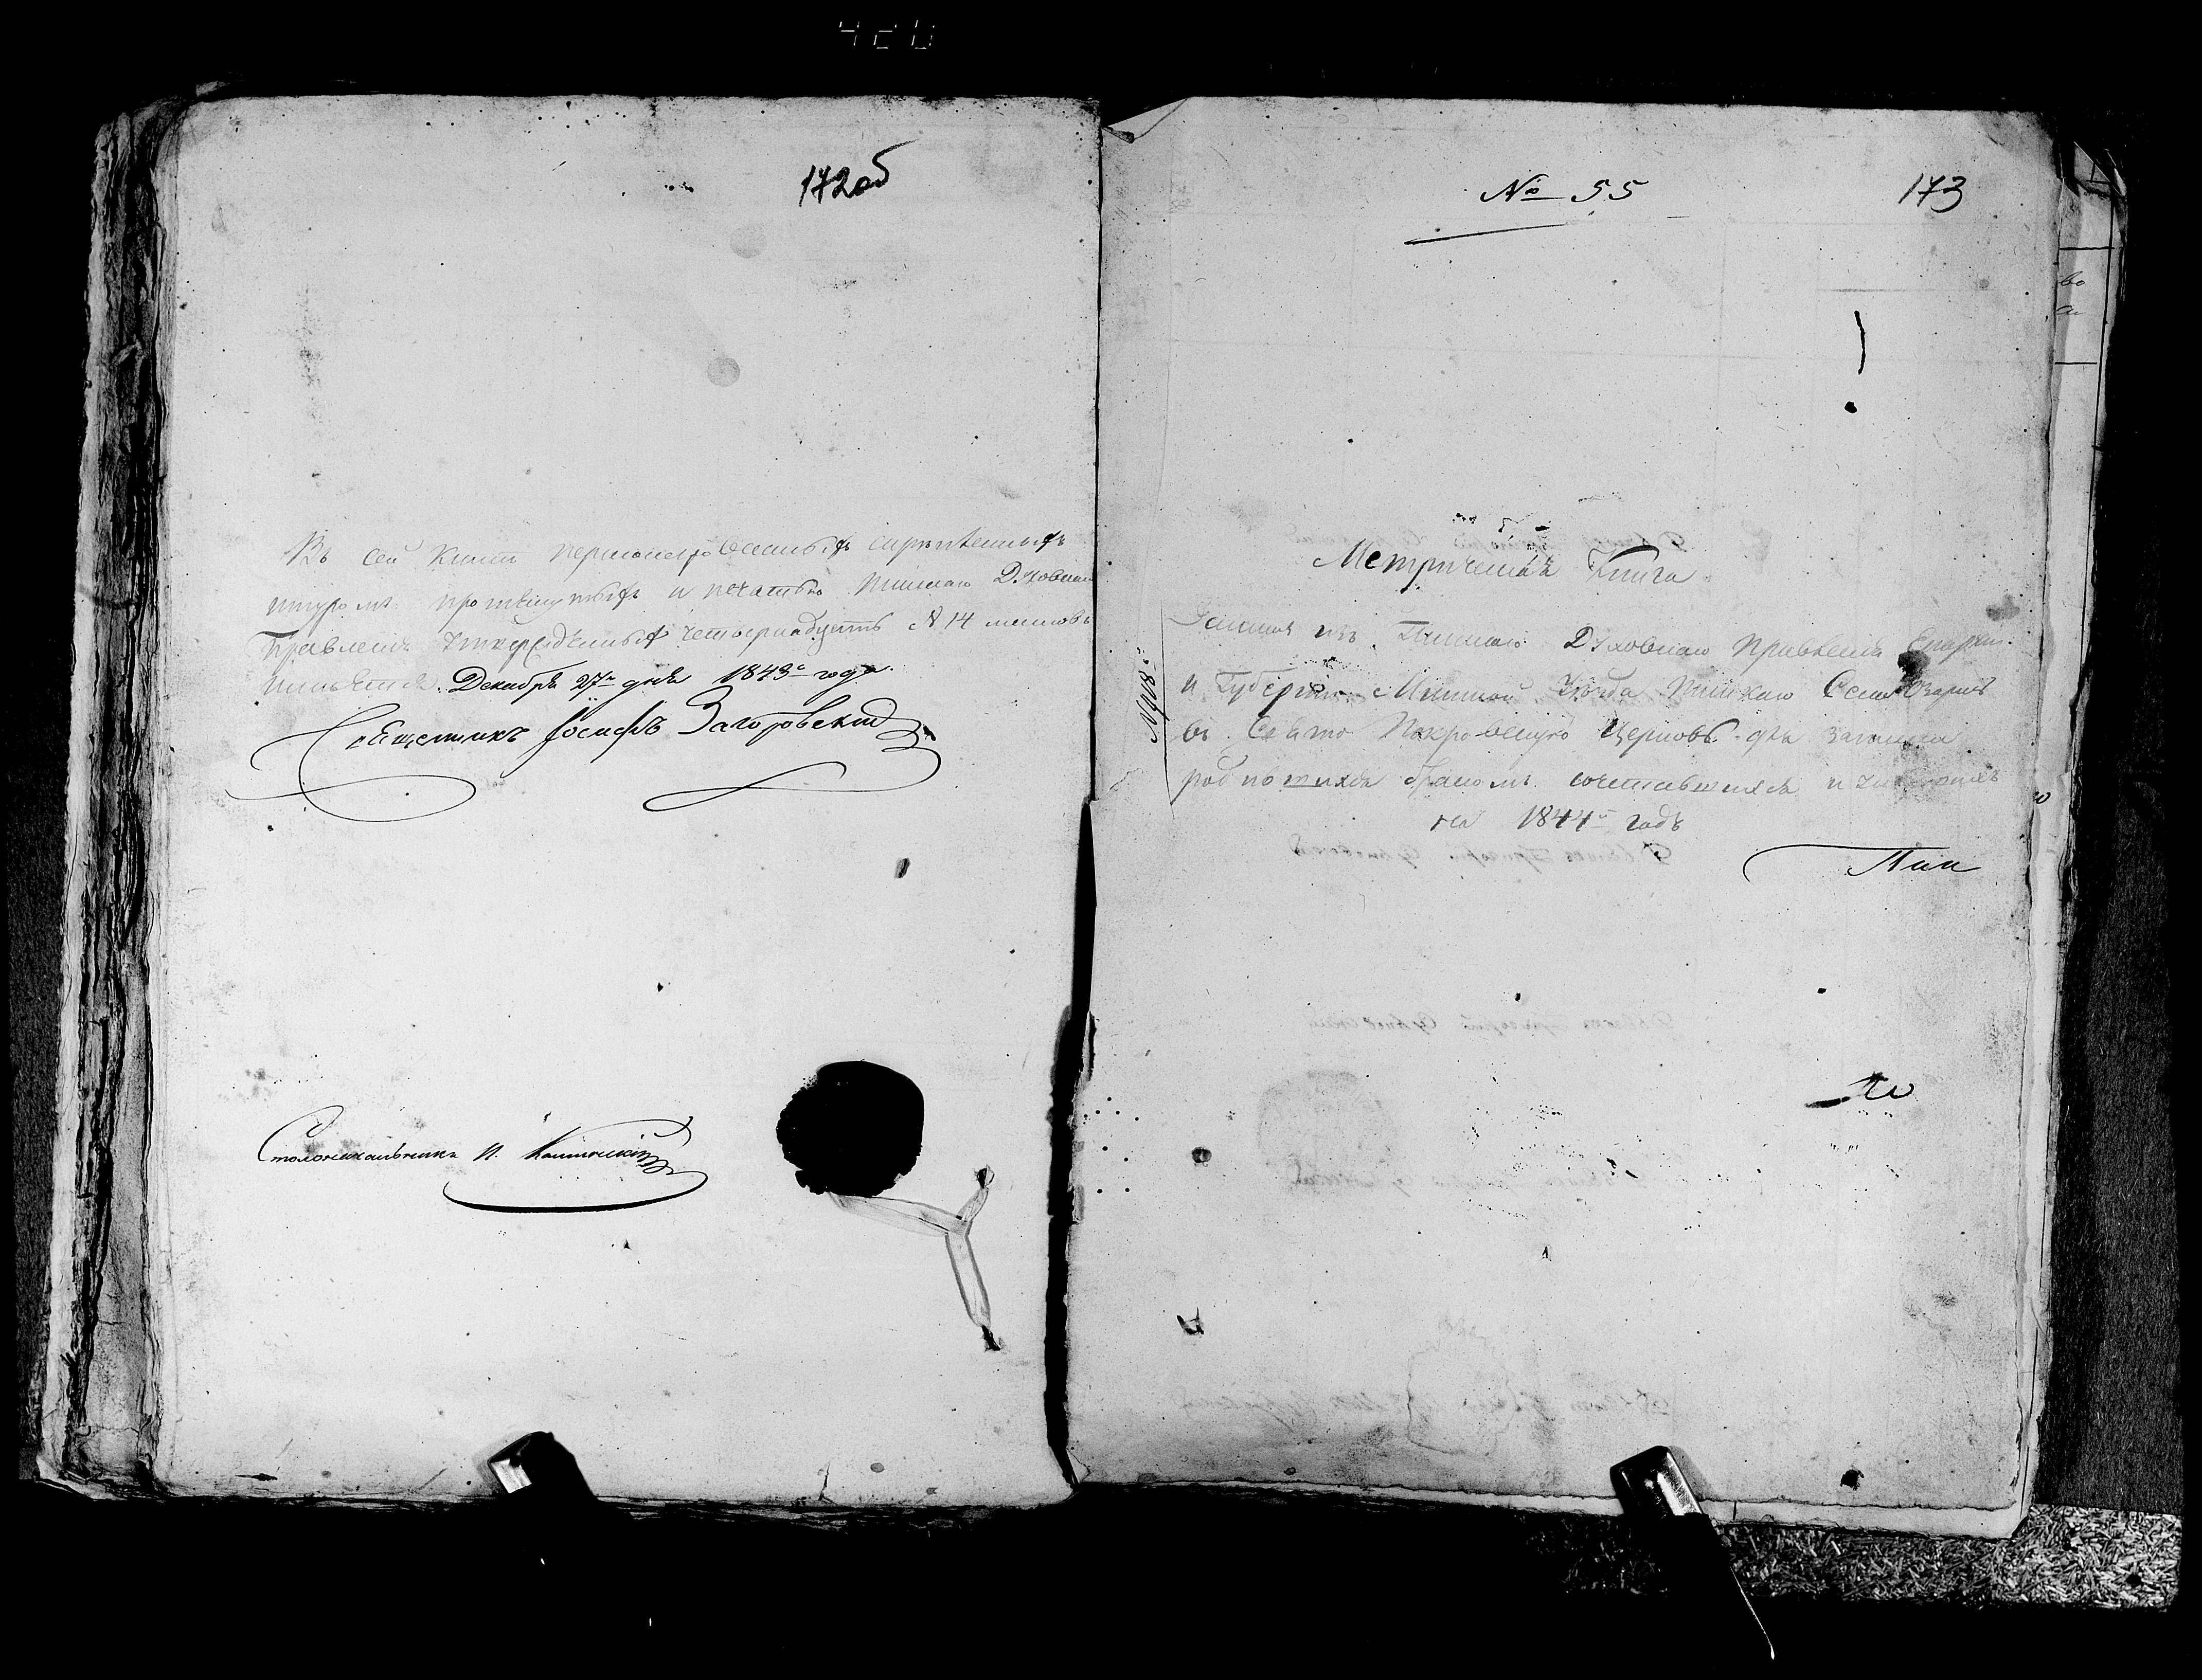 420
172об
Въ сей книгѣ перномерованныхъ скрѣпленныхъ
шнуромъ прошнутыхъ и печатью Пинскаго Духовнаго
Правленія утвержденныхъ четырнадцать № 14 листовъ
Декабря 27го дня 1843го года.
Священникъ Іосифъ Загоровскій
Столоначальникъ И.
№ 55
173
Метрическая Книга
Данная изъ Пинскаго Духовнаго Правленія Епархіи
и Губерніи Минской Уѣзда Пинскаго Села
въ Свято Покровскую Церковь для записки
родившихся бракомъ сочетавшихся и умершихъ
на 1844й годъ
Пин